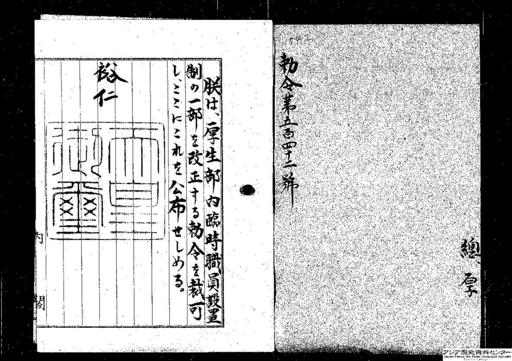 勅令第五百四十二號
總
厚
朕は、厚生部内臨時職員設置
制の一部を改正する勅令を裁可
し、ここにこれを公布せしめる。
裕仁
天皇
御璽
内
閣
アジア歴史資料センター